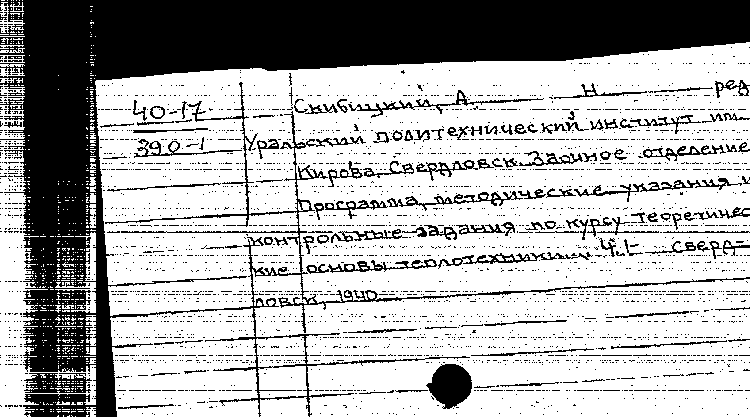 40-17
390-1
Скибицкий, А. Н. ред
Уральский политехнический институт им.
Кирова, Свердловск. Заочное отделение
Программа, методические указания и
контрольные задания по курсу теоретичес
кие основы теплотехники Ч.I- Сверд-
ловск, 1940